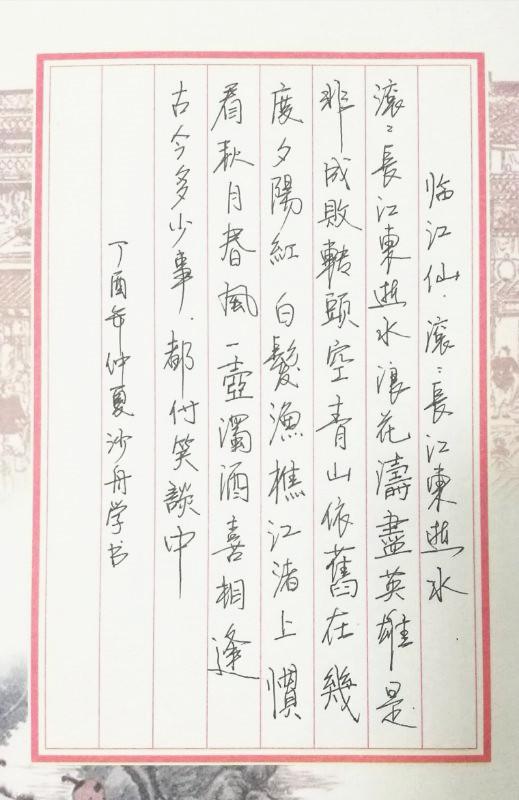 临江仙·滚〻長江東逝水
滚〻長江東逝水浪花濤盡英雄是
非成敗轉頭空青山依舊在幾
度夕陽紅白髮漁樵江渚上慣
看秋月春風一壺濁酒喜相逢
古今多少事．都付笑談中
丁酉年仲夏沙舟学书